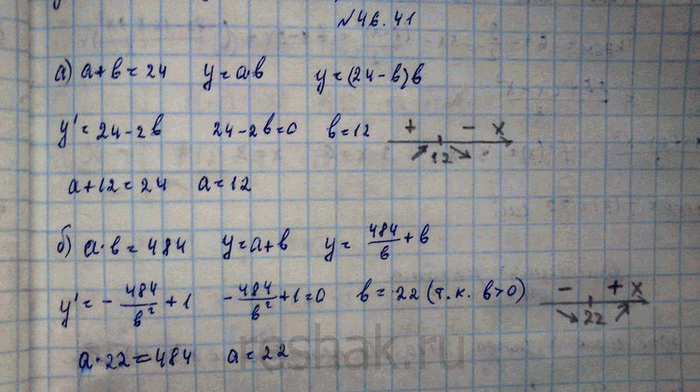 №46.41
а) a+b=24 y=ab y=(24-b)b
y'=24-2b 24-2b=0 b=12 + - x
12
a+12=24 a=12
б) a·b=484 y=a+b y=484/b+b
y'=-484/b²+1 -484/b²+1=0 b=22 (т.к. b>0) - + x
22
a·22=484 a=22
reshak.ru